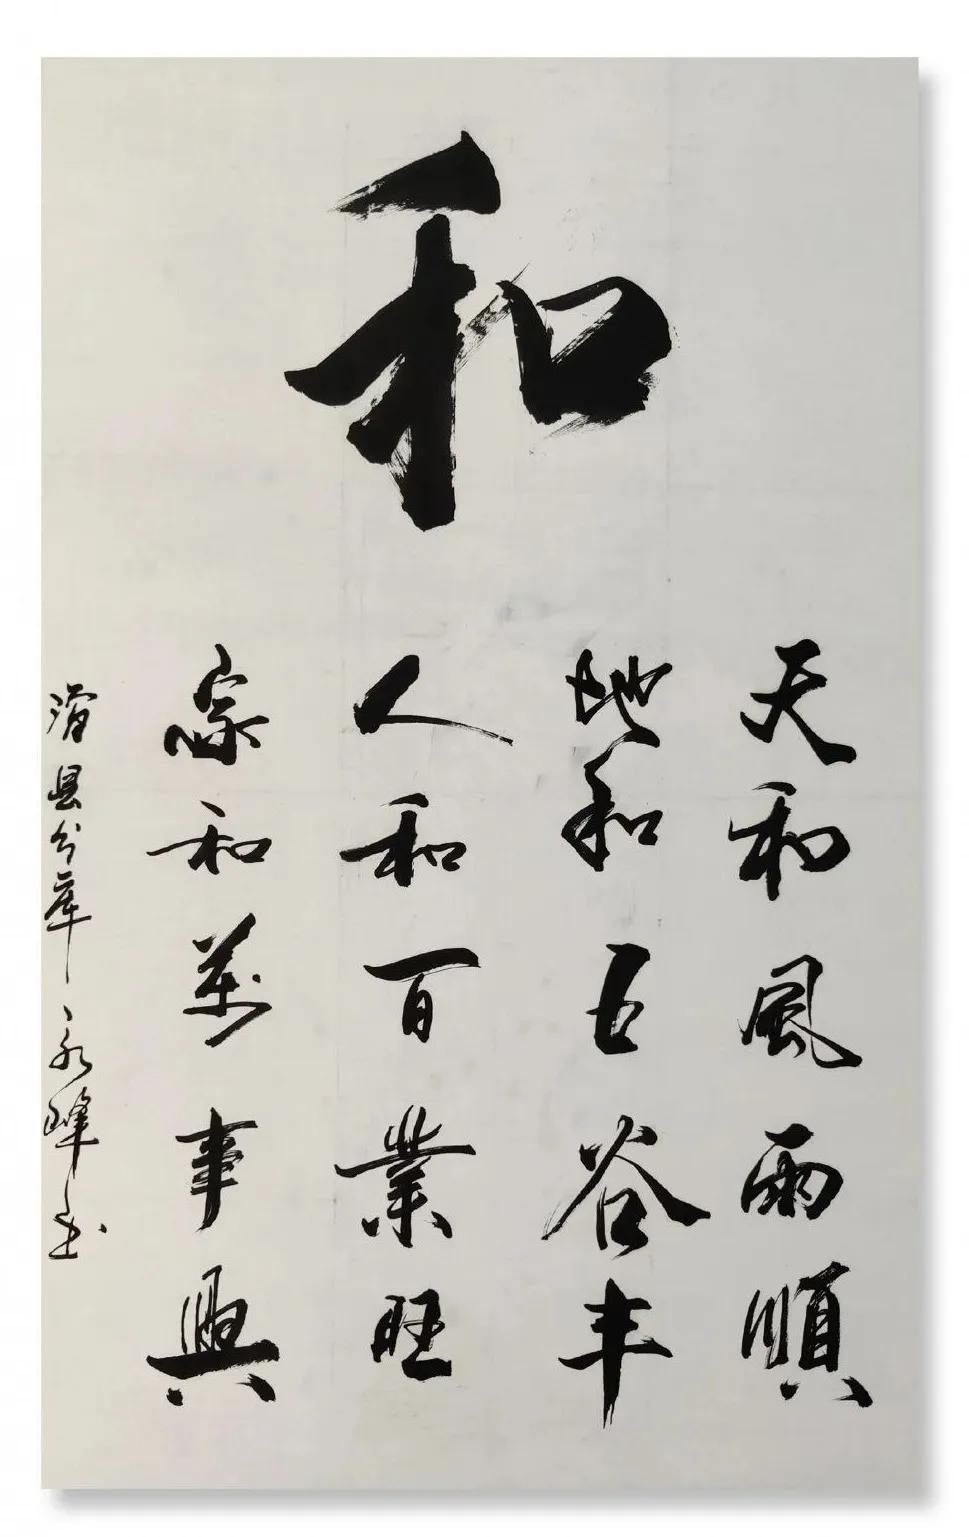 和
天和風雨順
地和五谷丰
人和百業旺
家和萬事興
滑县分库永峰书